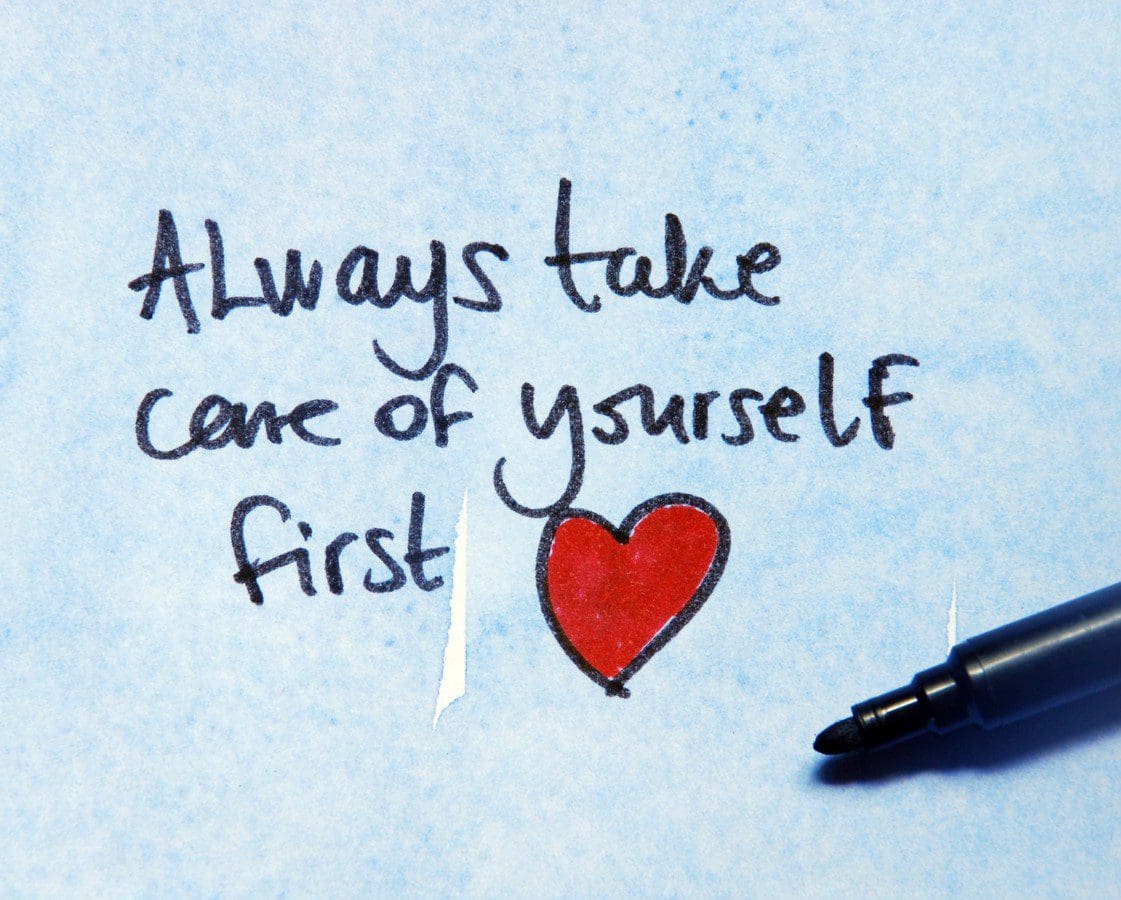 ALways take
care of yourself
first